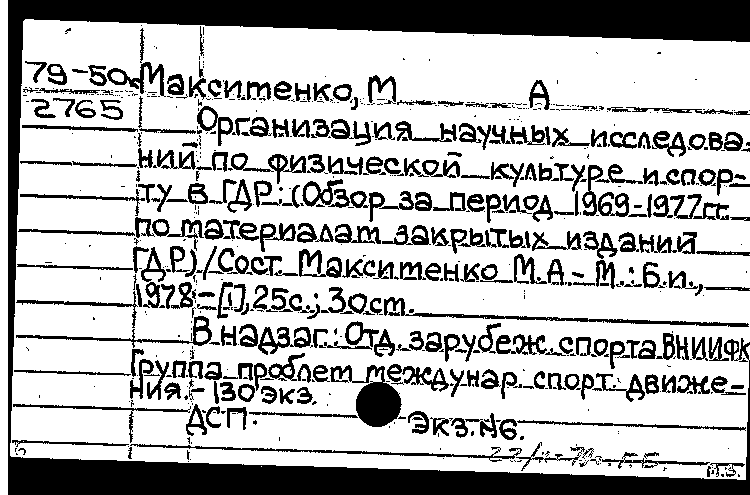 79-50с Макситенко, М А
2765
Организация научных исследова-
ний по физической культуре и спор-
ту в ГДР: (Обзор за период 1969-1977гг.
по материалам закрытых изданий
ГДР)/Сост. Макситенко М.А- М.: Б.и.,
1978-[1], 25с.; 30см.
В надзаг.: Отд. зарубеж. спорта ВНИИФК
Группа проблем междунар. спорт. движе-
ния.- 130 экз.
ДСП. Экз.№6.